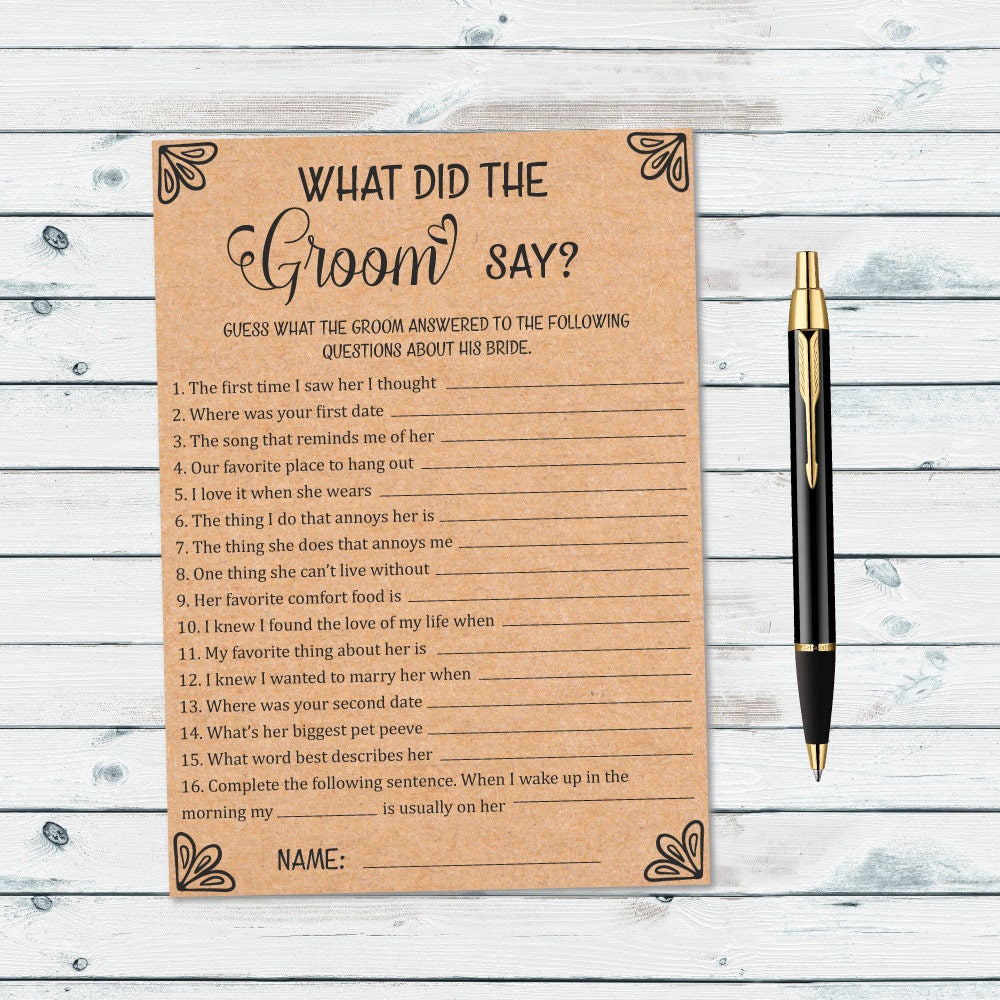 WHAT DID THE
Groom SAY?
GUESS WHAT THE GROOM ANSWERED TO THE FOLLOWING
QUESTIONS ABOUT HIS BRIDE.
1. The first time I saw her I thought
2. Where was your first date
3. The song that reminds me of her
4. Our favorite place to hang out
5. I love it when she wears
6. The thing I do that annoys her is
7. The thing she does that annoys me
8. One thing she can't live without
9. Her favorite comfort food is
10. I knew I found the love of my life when
11. My favorite thing about her is
12. I knew I wanted to marry her when
13. Where was your second date
14. What's her biggest pet peeve
15. What word best describes her
16. Complete the following sentence. When I wake up in the
morning my ____________ is usually on her
NAME: